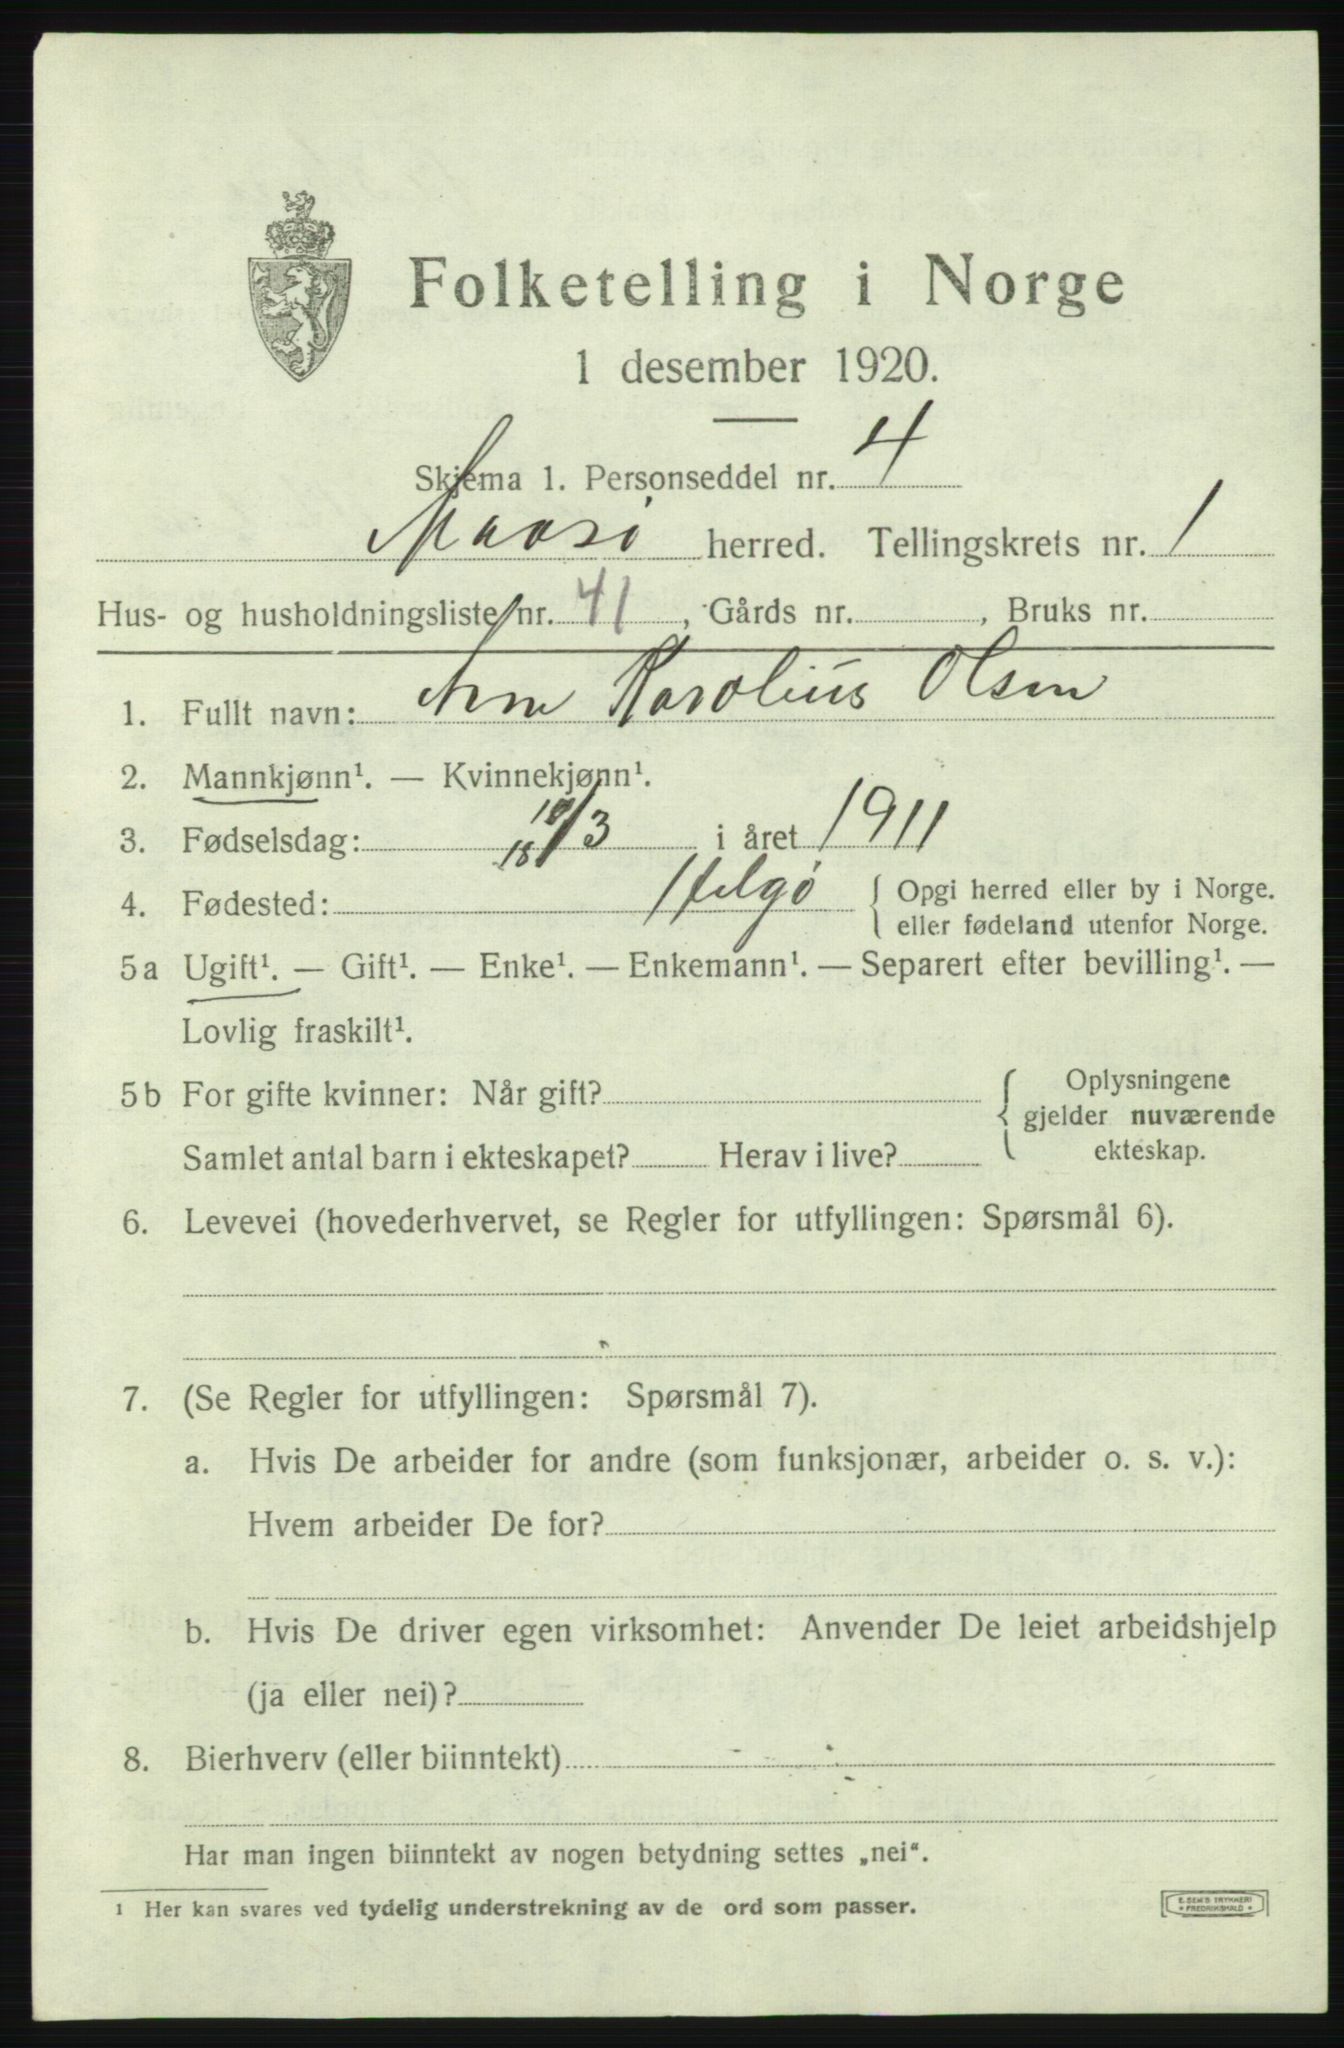 Folketelling i Norge
1 desember 1920.
Skjema 1. Personseddel nr. 4
Maasö herred. Tellingskrets nr. 1
Hus- og husholdningsliste nr. 41, Gårds nr. , Bruks nr.
1. Fullt navn: Arne Karolius Olsen
2. Mannkjønn¹. — Kvinnekjønn¹.
3. Fødselsdag: 18/3 i året 1911
4. Fødested: Helgö { Opgi herred eller by i Norge.
eller fødeland utenfor Norge.
5a Ugift¹. — Gift¹. — Enke¹. — Enkemann¹. — Separert efter bevilling¹. —
Lovlig fraskilt¹.
5b For gifte kvinner: Når gift? { Oplysningene
gjelder nuværende
Samlet antal barn i ekteskapet? Herav i live? ekteskap.
6. Levevei (hovederhvervet, se Regler for utfyllingen: Spørsmål 6).
7. (Se Regler for utfyllingen: Spørsmål 7).
a. Hvis De arbeider for andre (som funksjonær, arbeider o. s. v.):
Hvem arbeider De for?
b. Hvis De driver egen virksomhet: Anvender De leiet arbeidshjelp
(ja eller nei)?
8. Bierhverv (eller biinntekt)
Har man ingen biinntekt av nogen betydning settes „nei“.
¹ Her kan svares ved tydelig understrekning av de ord som passer.
E. SEM'S TRYKKERI
* FREDRIKSHALD *